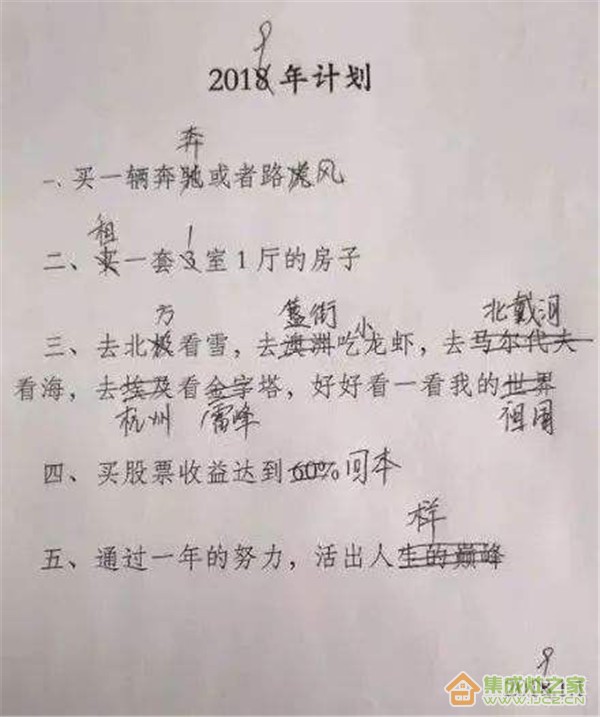 9
2018年计划
奔
一、买一辆奔驰或者路虎风
租 1
二、买一套3室1厅的房子
方 簋街 小 北戴河
三、去北极看雪，去澳洲吃龙虾，去马尔代夫
看海，去埃及看金字塔，好好看一看我的世界
杭州 雷峰 祖国
四、买股票收益达到60%回本
样
五、通过一年的努力，活出人生的巅峰
9
集成灶之家